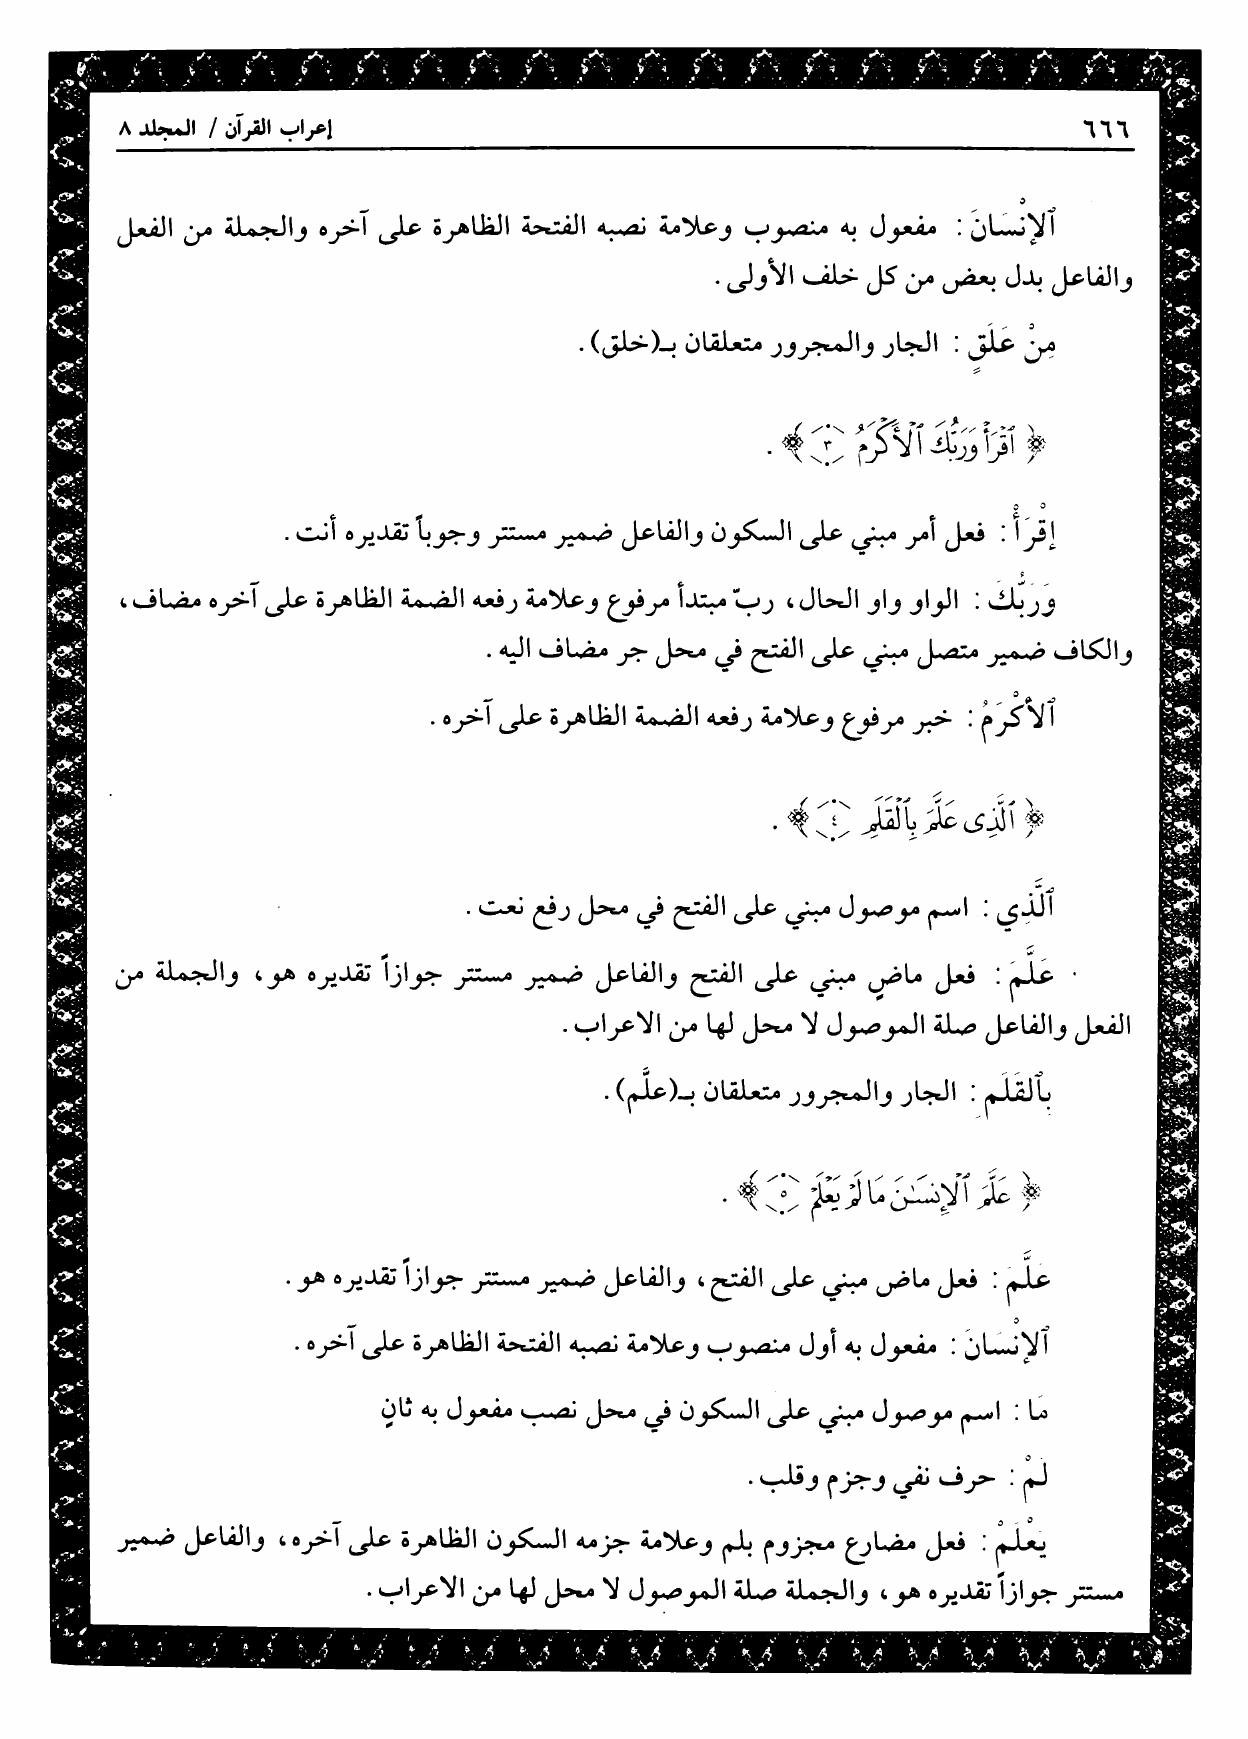 ٦٦٦
إعراب القرآن / المجلد ٨
ٱلإنْسَانَ : مفعول به منصوب وعلامة نصبه الفتحة الظاهرة على آخره والجملة من الفعل
والفاعل بدل بعض من كل خلف الأولى .
مِنْ عَلَقٍ : الجار والمجرور متعلقان بـ(خلق) .
﴿ ٱقْرَأْ وَرَبُّكَ ٱلْأَكْرَمُ ٣ ﴾ .
إقْرَأْ : فعل أمر مبني على السكون والفاعل ضمير مستتر وجوباً تقديره أنت .
وَرَبُّكَ : الواو واو الحال، ربّ مبتدأ مرفوع وعلامة رفعه الضمة الظاهرة على آخره مضاف،
والكاف ضمير متصل مبني على الفتح في محل جر مضاف اليه .
ٱلأكْرَمُ : خبر مرفوع وعلامة رفعه الضمة الظاهرة على آخره .
﴿ ٱلَّذِى عَلَّمَ بِٱلْقَلَمِ ٤ ﴾ .
ٱلَّذِي : اسم موصول مبني على الفتح في محل رفع نعت .
عَلَّمَ : فعل ماضٍ مبني على الفتح والفاعل ضمير مستتر جوازاً تقديره هو، والجملة من
الفعل والفاعل صلة الموصول لا محل لها من الاعراب .
بِٱلقَلَمِ : الجار والمجرور متعلقان بـ(علَّم) .
﴿ عَلَّمَ ٱلْإِنسَـٰنَ مَا لَمْ يَعْلَمْ ٥ ﴾ .
عَلَّمَ : فعل ماض مبني على الفتح، والفاعل ضمير مستتر جوازاً تقديره هو .
ٱلإنْسَانَ : مفعول به أول منصوب وعلامة نصبه الفتحة الظاهرة على آخره .
مَا : اسم موصول مبني على السكون في محل نصب مفعول به ثانٍ
لَمْ : حرف نفي وجزم وقلب .
يَعْلَمْ : فعل مضارع مجزوم بلم وعلامة جزمه السكون الظاهرة على آخره، والفاعل ضمير
مستتر جوازاً تقديره هو، والجملة صلة الموصول لا محل لها من الاعراب .